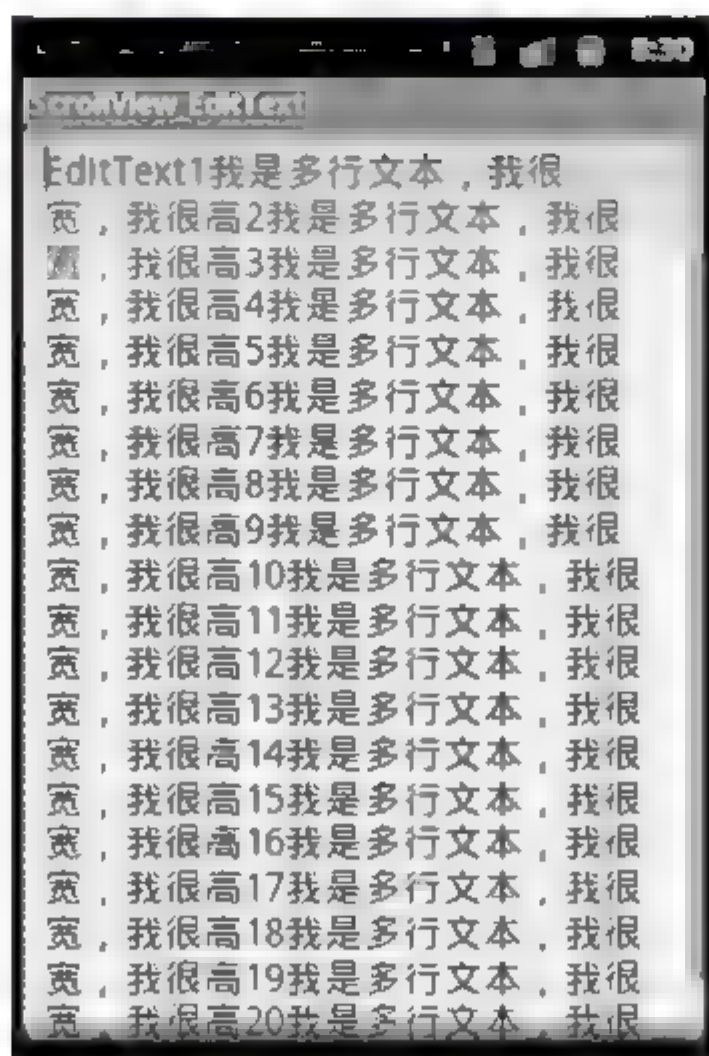 ScrollView EditText
EditText1我是多行文本，我很
宽，我很高2我是多行文本，我很
，我很高3我是多行文本，我很
宽，我很高4我是多行文本，我很
宽，我很高5我是多行文本，我很
宽，我很高6我是多行文本，我很
宽，我很高7我是多行文本，我很
宽，我很高8我是多行文本，我很
宽，我很高9我是多行文本，我很
宽，我很高10我是多行文本，我很
宽，我很高11我是多行文本，我很
宽，我很高12我是多行文本，我很
宽，我很高13我是多行文本，我很
宽，我很高14我是多行文本，我很
宽，我很高15我是多行文本，我很
宽，我很高16我是多行文本，我很
宽，我很高17我是多行文本，我很
宽，我很高18我是多行文本，我很
宽，我很高19我是多行文本，我很
宽，我很高20我是多行文本，我很